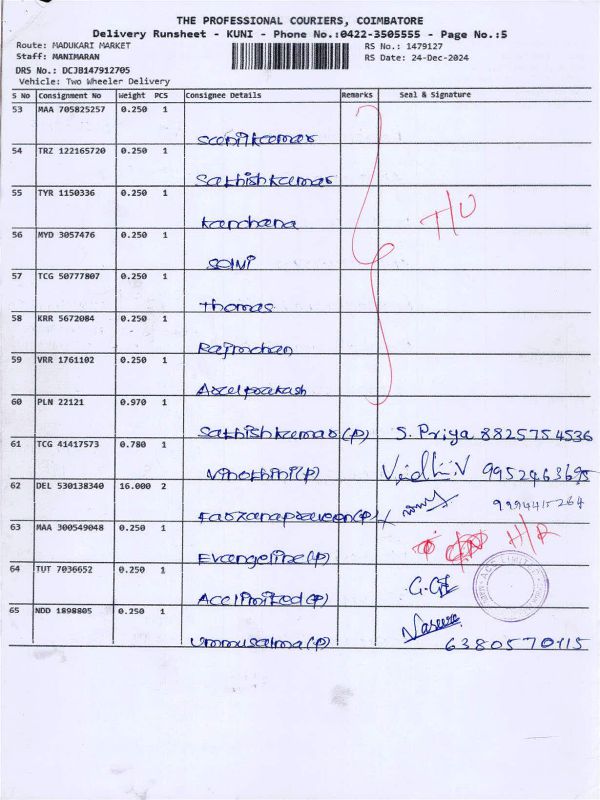 THE PROFESSIONAL COURIERS, COIMBATORE
Delivery Runsheet - KUNI - Phone No.:0422-3505555 - Page No.:5
Route: MADUKARI MARKET RS No.: 1479127
Staff: MANIMARAN RS Date: 24-Dec-2024
DRS No.: DCJB147912705
Vehicle: Two Wheeler Delivery
S No Consignment No Weight PCS Consignee Details Remarks Seal & Signature
53 MAA 705825257 0.250 1
54 TRZ 122165720 0.250 1
Sathishkumar
55 TYR 1150336 0.250 1
Kanchana
T/U
56 MYD 3057476 0.250 1
57 TCG 50777807 0.250 1
Thomas
58 KRR 5672084 0.250 1
Rajmohan
59 VRR 1761102 0.250 1
Arulprakash
60 PLN 22121 0.970 1
Sathishkumar(P) S. Priya 8825754536
61 TCG 41417573 0.780 1
Vinothini(P) 9952463695
62 DEL 530138340 16.000 2
Farzanapraveen(P) 9994415264
63 MAA 300549048 0.250 1
H/R
Evangeline(P)
64 TUT 7036652 0.250 1
Acelimited(P)
65 NDD 1898805 0.250 1
Naseera
Ummusalma(P) 6380570115